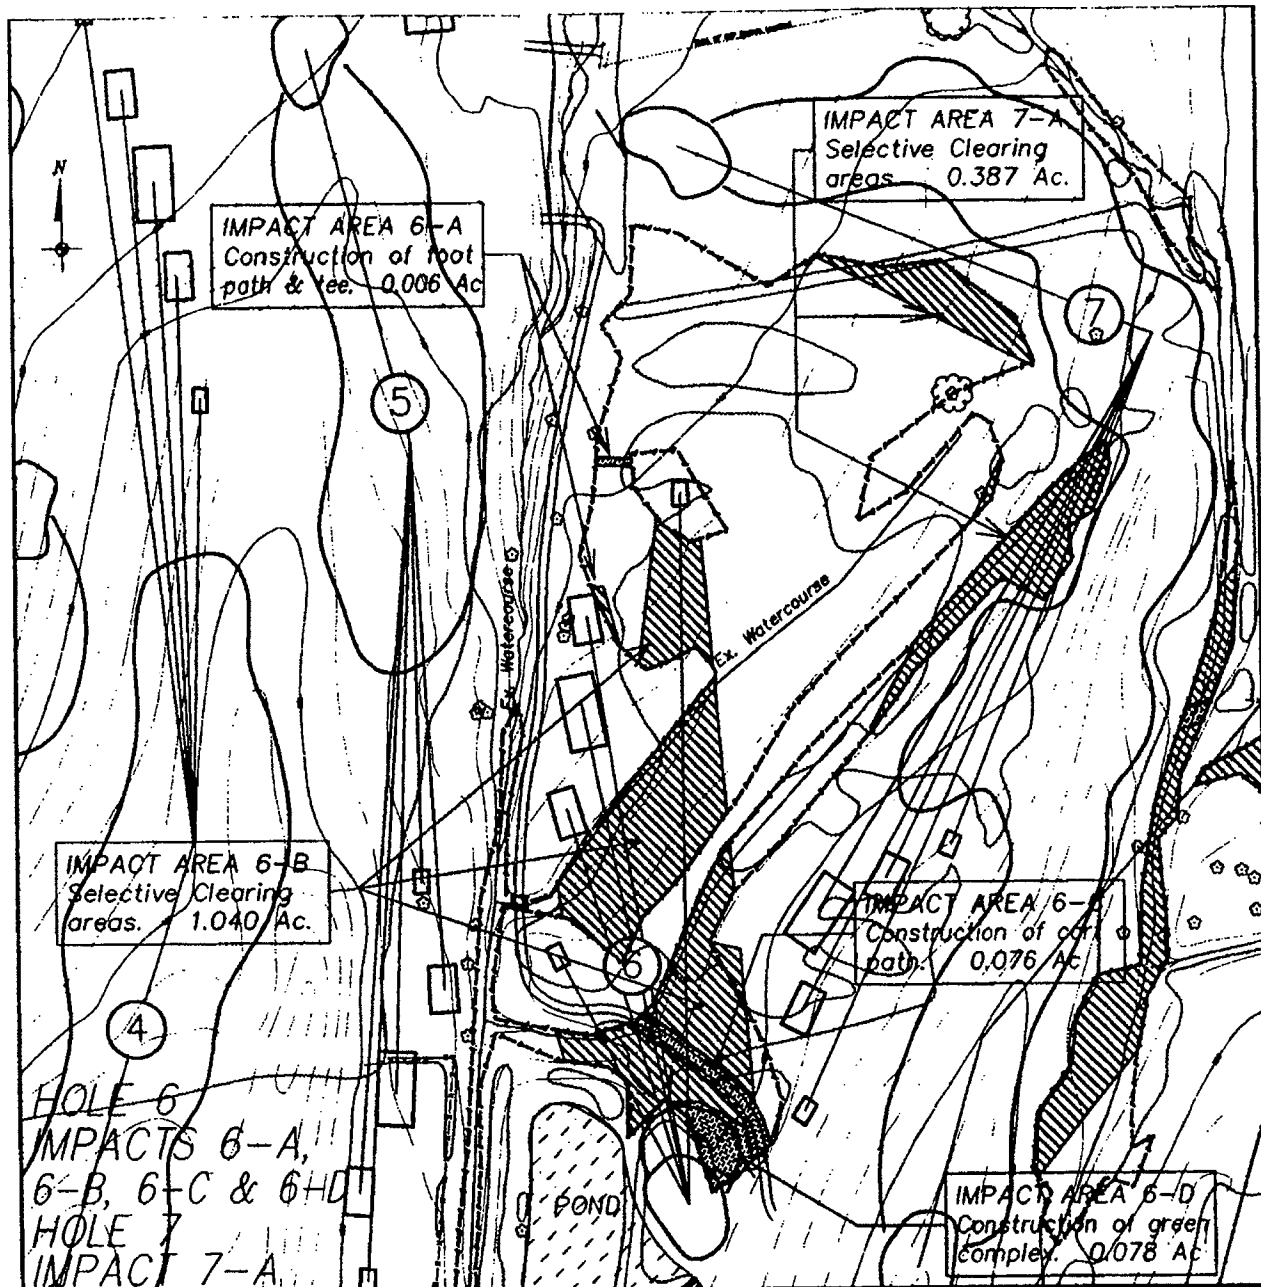 IMPACT AREA 7-A
Selective Clearing
areas. 0.387 Ac.
N
IMPACT AREA 6-A
Construction of foot
path & tee. 0.006 Ac
7
5
Ex. Watercourse
Ex. Watercourse
IMPACT AREA 6-B
Selective Clearing
areas. 1.040 Ac.
IMPACT AREA 6-C
Construction of cart
path. 0.076 Ac
6
4
HOLE 6
IMPACTS 6-A,
6-B, 6-C & 6-D
HOLE 7
IMPACT 7-A
POND
IMPACT AREA 6-D
Construction of green
complex. 0.078 Ac